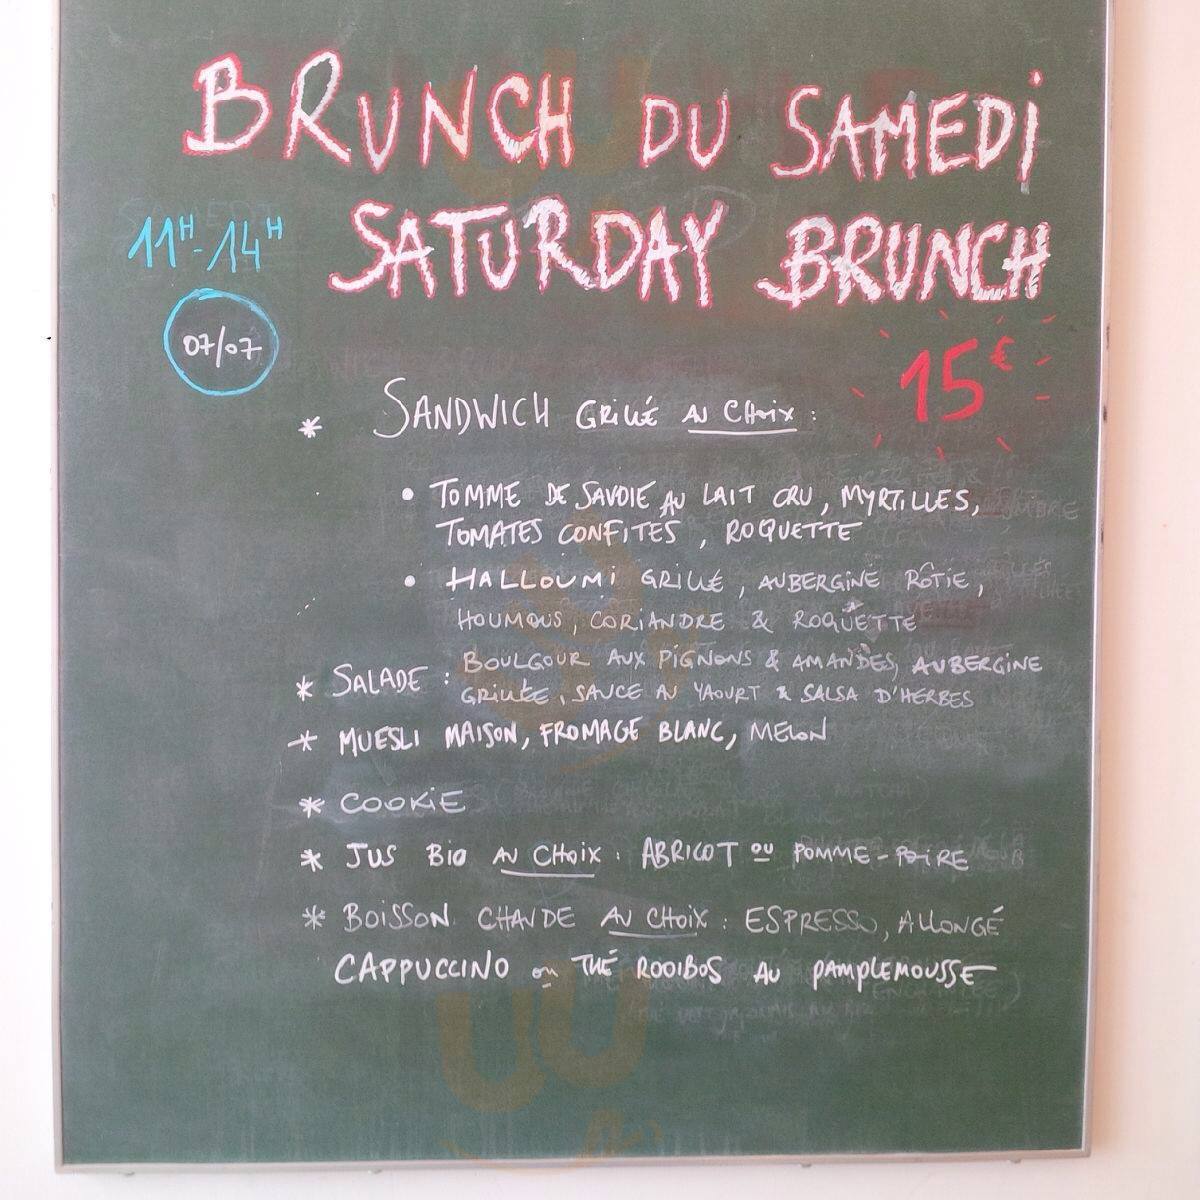 BRUNCH DU SAMEDI
11H-14H SATURDAY BRUNCH
07/07
15€
* SANDWICH GRILLÉ AU CHOIX :
• TOMME DE SAVOIE AU LAIT CRU, MYRTILLES,
TOMATES CONFITES, ROQUETTE
• HALLOUMI GRILLÉ, AUBERGINE RÔTIE,
HOUMOUS, CORIANDRE & ROQUETTE
* SALADE : BOULGOUR AUX PIGNONS & AMANDES, AUBERGINE
GRILLÉE, SAUCE AU YAOURT & SALSA D'HERBES
* MUESLI MAISON, FROMAGE BLANC, MELON
* COOKIE
* JUS BIO AU CHOIX : ABRICOT OU POMME-POIRE
* BOISSON CHAUDE AU CHOIX : ESPRESSO, ALLONGÉ
CAPPUCCINO OU THÉ ROOIBOS AU PAMPLEMOUSSE